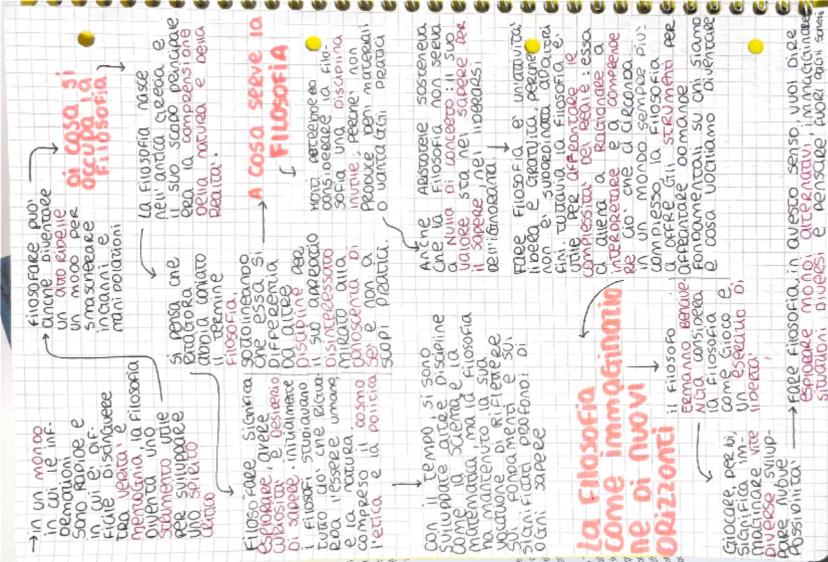 Di cosa si
occupa la
filosofia
La filosofia nasce
nell'antica Grecia e
il suo scopo principale
era la comprensione
della natura e della
realtà.
Si pensa che
Pitagora
abbia coniato
il termine
filosofia,
sottolineando
che essa si
differenzia
da altre
discipline per
il suo approccio
disinteressato
mirato alla
conoscenza di
sé e non a
scopi pratici.
Filosofare significa
esplorare, avere
curiosità e desiderio
di sapere. Inizialmente
i filosofi studiavano
tutto ciò che rigua
rda l'essere umano,
e la natura
compreso il cosmo
l'etica e la politica
con il tempo si sono
sviluppate altre discipline
come la scienza e la
matematica, ma la filosofia
ha mantenuto la sua
vocazione di riflettere
sui fondamenti e sui
significati profondi di
ogni sapere
In un mondo
in cui le inf-
ormazioni
sono rapide e
in cui è dif-
ficile distinguere
tra verità e
menzogna, la filosofia
diventa uno
strumento utile
per sviluppare
uno spirito
critico
Filosofare può
anche diventare
un atto ribelle
un modo per
smascherare
inganni e
manipolazioni
A cosa serve la
filosofia
Molti potrebbero
considerare la filo-
sofia una disciplina
inutile, perché non
produce beni materiali
o vantaggi pratici
Anche Aristotele sosteneva
che la filosofia non serva
a nulla di concreto: il suo
valore sta nel sapere per
il sapere, nel liberarsi
dell'ignoranza
Fare filosofia è un'attività
libera e gratuita perché
non è subordinata ad altri
fini. Tuttavia la filosofia è
utile per affrontare le
complessità del reale: essa
ci allena a ragionare, a
interpretare e a comprende
re ciò che ci circonda. In
un mondo sempre più
complesso, la filosofia
ci offre gli strumenti per
affrontare domande
fondamentali su chi siamo
e cosa vogliamo diventare
La filosofia
come immaginazio
ne di nuovi
orizzonti
Il filosofo
Ermanno Bencive
nga considera
la filosofia
come gioco e
un esercizio di
libertà,
Giocare, per lui,
significa im-
maginare vite
diverse svilup-
pare nuove
possibilità
Fare filosofia, in questo senso, vuol dire
esplorare mondi alternativi, immaginare
situazioni diverse e pensare fuori dagli schemi